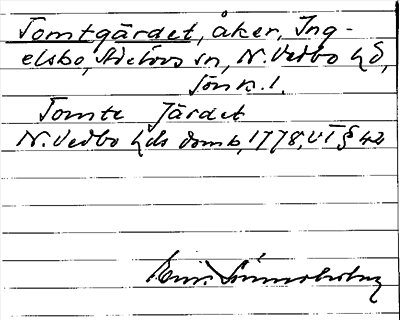 Tomtgärdet, åker, Ing-
elsbo, Adelövs sn, N. Vedbo hd,
Jönk. l.
Tomte Järdet
N. Vedbo hds domb, 1778, VI § 42